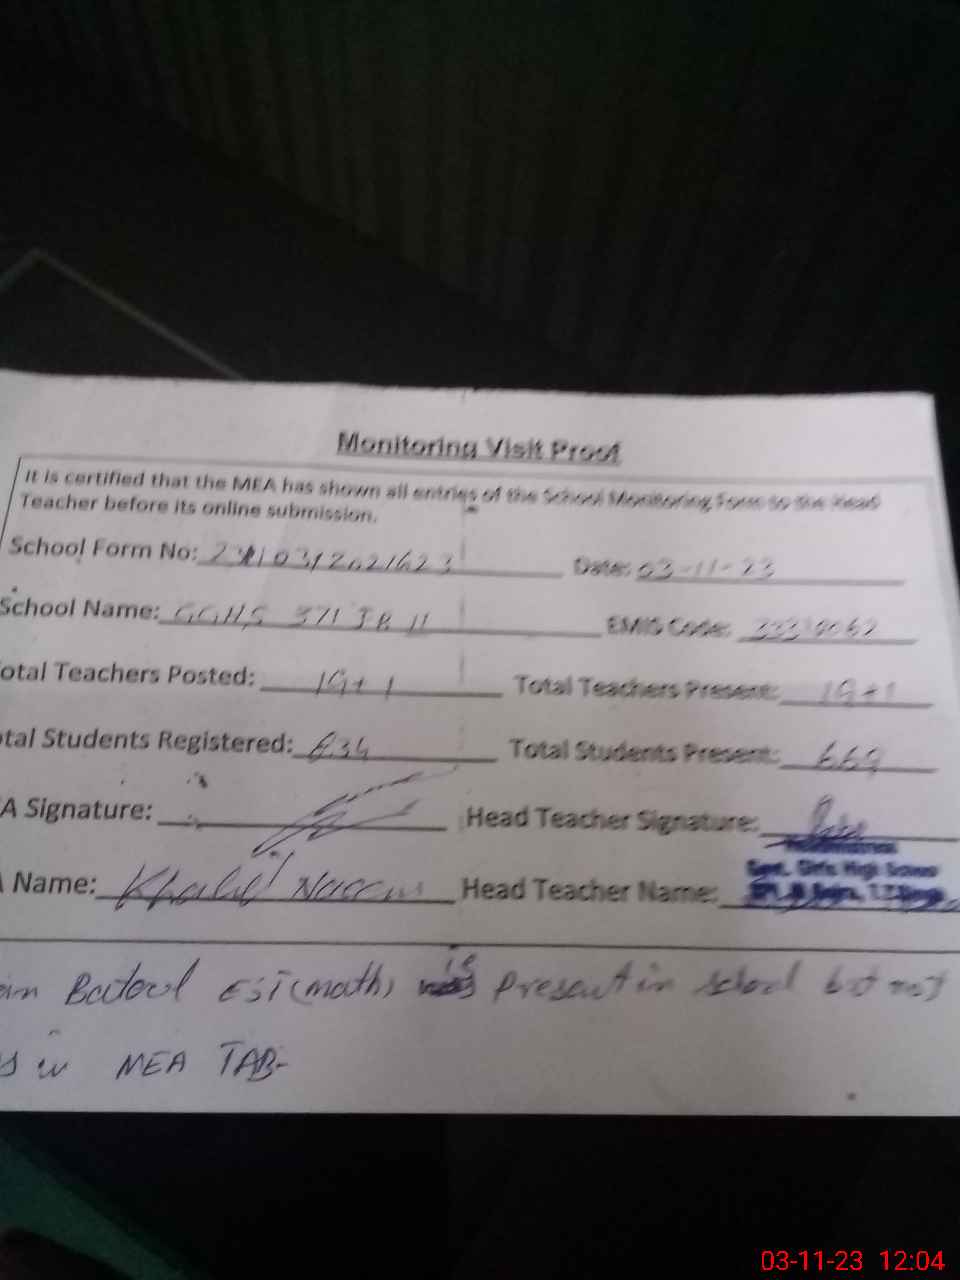 Monitoring Visit Proof
It is certified that the MEA has shown all entries of the School Monitoring Form to the Head
Teacher before its online submission.
School Form No: Date: 03-11-23
School Name: GGHS 371 JB II EMIS Code:
otal Teachers Posted: 19+1 Total Teachers Present: 19+1
otal Students Registered: 834 Total Students Present: 669
A Signature: Head Teacher Signature:
Name: Khalid Head Teacher Name:
Govt. Girls High School
Batool ESI (math) is present in school but not
in MEA TAB-
03-11-23 12:04